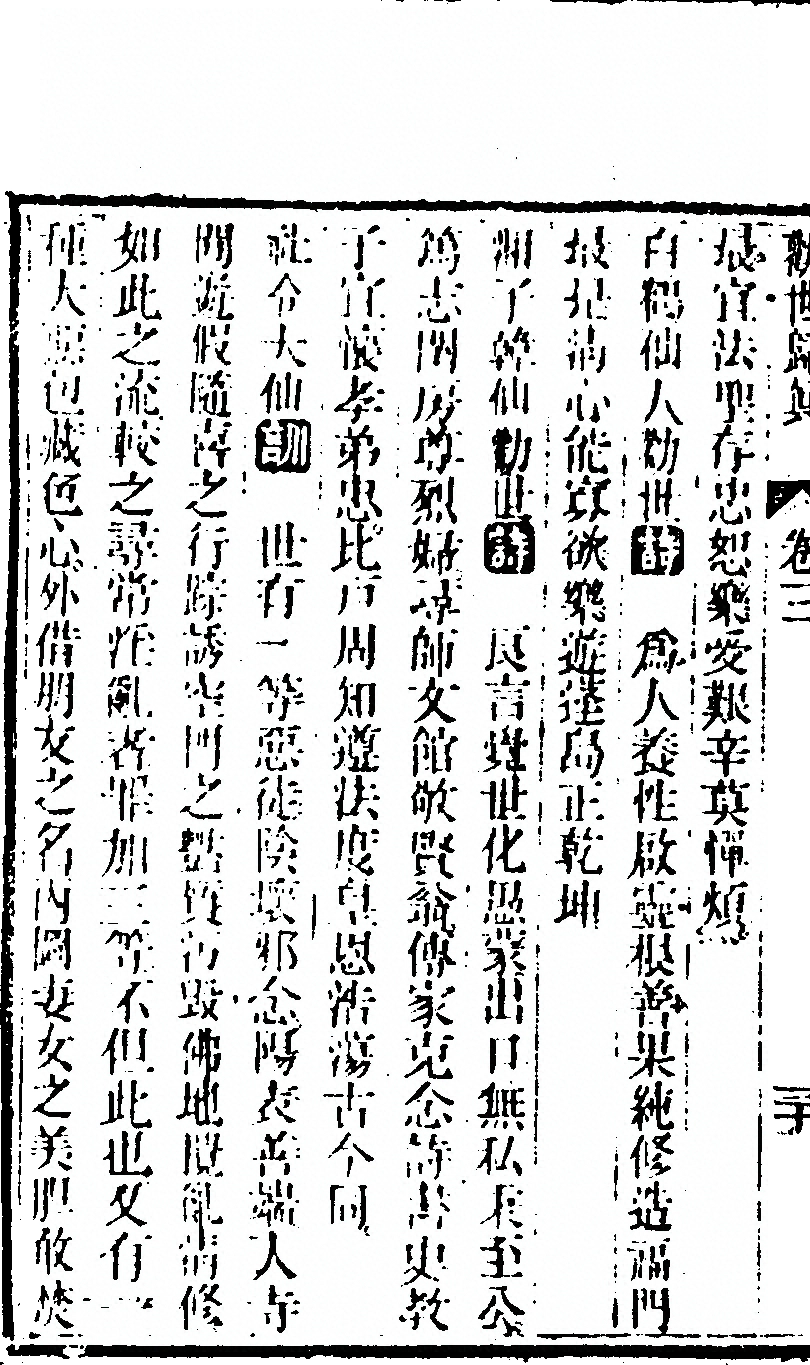 勸世歸真 卷三 二十
最宜法聖存忠恕樂愛艱辛莫憚煩
白鶴仙人勸世詩 為人養性啟靈根善果純修造福門
最是清心能寡欲樂遊蓬島正乾坤
湘子韓仙勸世詩 良言覺世化愚蒙出口無私表至公
篤志閨房尊烈婦尋師文館敬賢翁傳家克念詩書史教
子宜懷孝弟忠比戶周知遵法度皇恩浩蕩古今同
社令大仙訓 世有一等惡徒陰壞邪念陽表善端入寺
閒遊假隨喜之行踪誘空門之豔質污毀佛地混亂清修
如此之流較之尋常淫亂者罪加三等不但此也又有一
種大惡包藏色心外借朋友之名內圖妻女之美胆敢焚